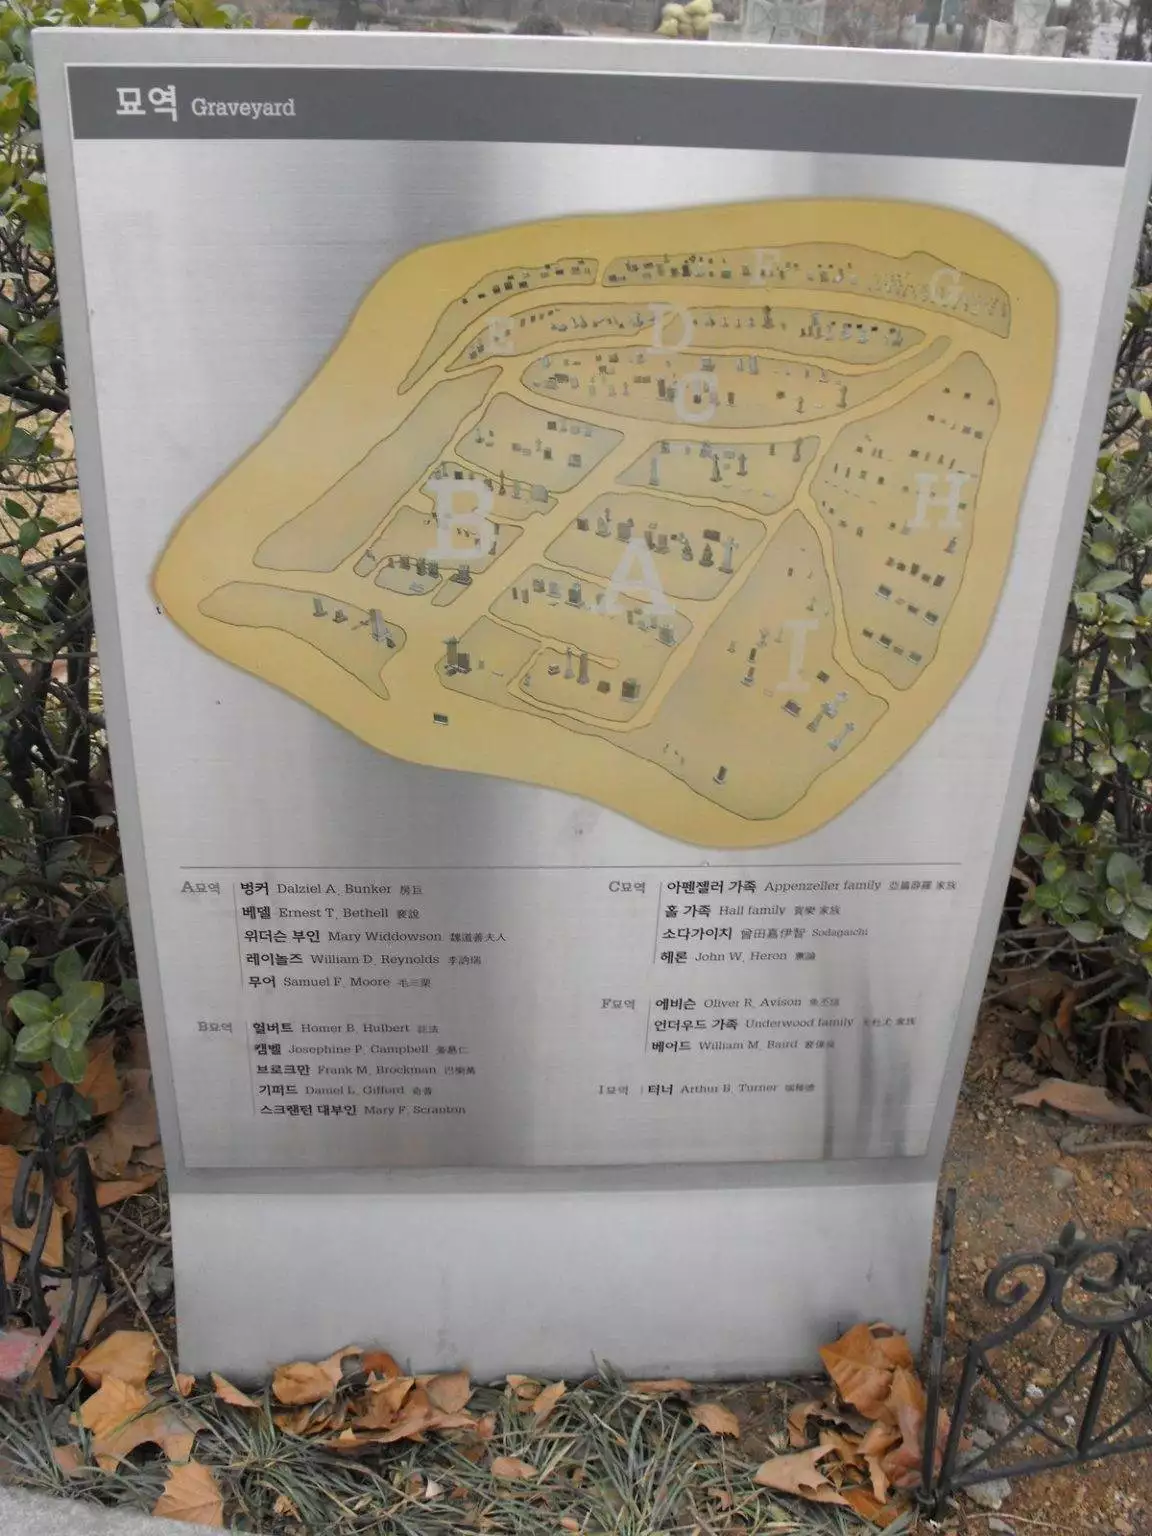 묘역 Graveyard
F
G
E
D
C
B
H
A
I
A묘역 벙커 Dalziel A. Bunker 房巨
베델 Ernest T. Bethell 裵說
위더슨 부인 Mary Widdowson 魏道善夫人
레이놀즈 William D. Reynolds 李訥瑞
무어 Samuel F. Moore 毛三栗
B묘역 헐버트 Homer B. Hulbert
캠벨 Josephine P. Campbell
브로크만 Frank M. Brockman 巴樂萬
기퍼드 Daniel L. Gifford 奇普
스크랜턴 대부인 Mary F. Scranton
C묘역 아펜젤러 가족 Appenzeller family 亞篇薛羅 家族
홀 가족 Hall family 賀樂 家族
소다가이치 曾田嘉伊智 Sodagaichi
헤론 John W. Heron 蕙論
F묘역 에비슨 Oliver R. Avison 魚丕信
언더우드 가족 Underwood family 家族
베어드 William M. Baird 裵偉良
I묘역 터너 Arthur B. Turner